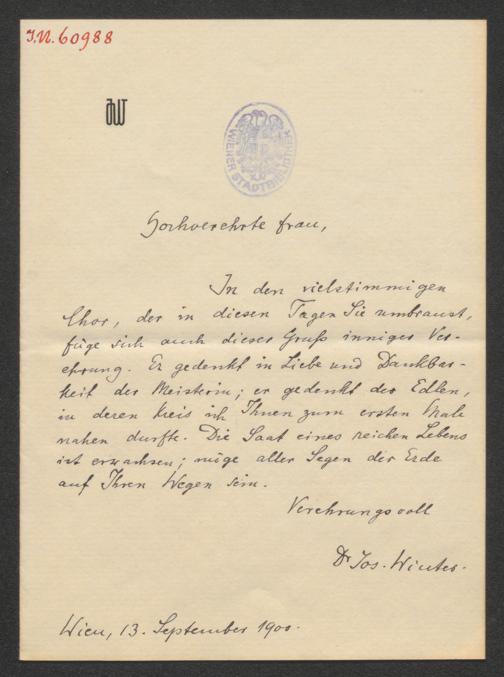 J.N. 60988
JW
WIENER STADTBIBLIOTHEK
Hochverehrte Frau,
In den vielstimmigen
Chor, der in diesen Tagen Sie umbraust,
füge sich auch dieser Gruß inniger Ver-
ehrung. Er gedenkt in Liebe und Dankbar-
keit der Meisterin; er gedenkt der Edlen,
in deren Kreis ich Ihnen zum ersten Male
nahen durfte. Die Saat eines reichen Lebens
ist erwachsen; möge aller Segen der Erde
auf Ihren Wegen sein.
Verehrungsvoll
Dr Jos. Winter.
Wien, 13. September 1900.